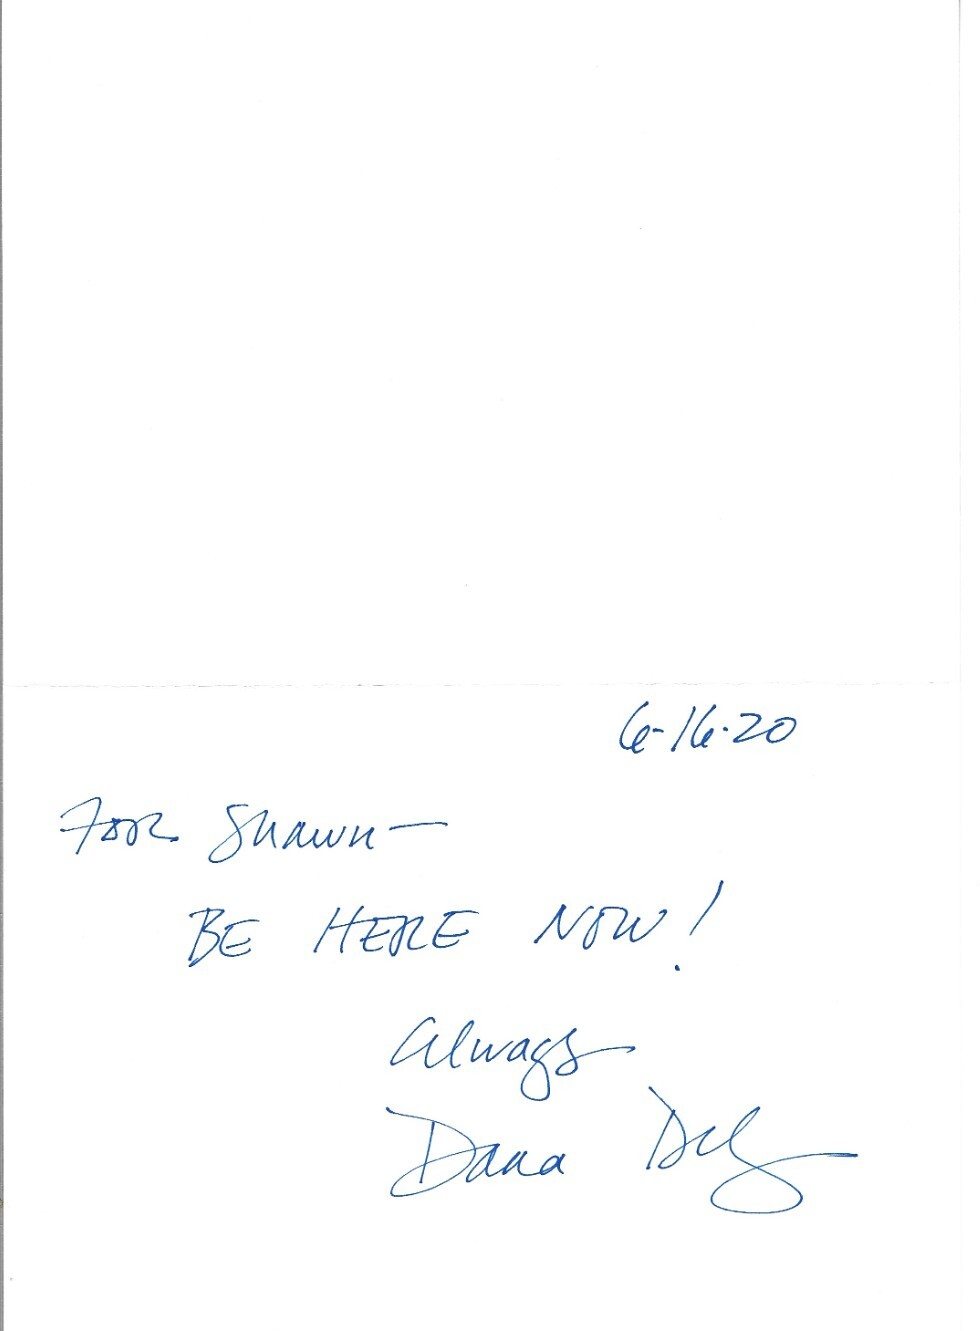 6-16-20
FOR Shawn—
BE HERE NOW!
Always
Dana